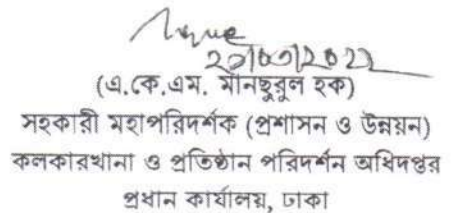 (এ.কে.এম. মানছুরুল হক)
সহকারী মহাপরিদর্শক (প্রশাসন ও উন্নয়ন)
কলকারখানা ও প্রতিষ্ঠান পরিদর্শন অধিদপ্তর
প্রধান কার্যালয়, ঢাকা